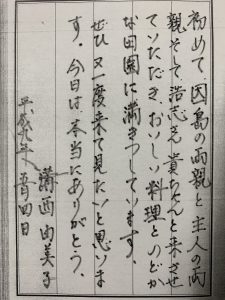 初めて、因島の両親と主人の両
親そして浩志さん貴ちゃんと来させ
ていただき、おいしい料理とのどか
な田園に満きつしています。
ぜひ又一度来て見たいと思いま
す。今日は本当にありがとう。
蒲西由美子
平成九年 四日